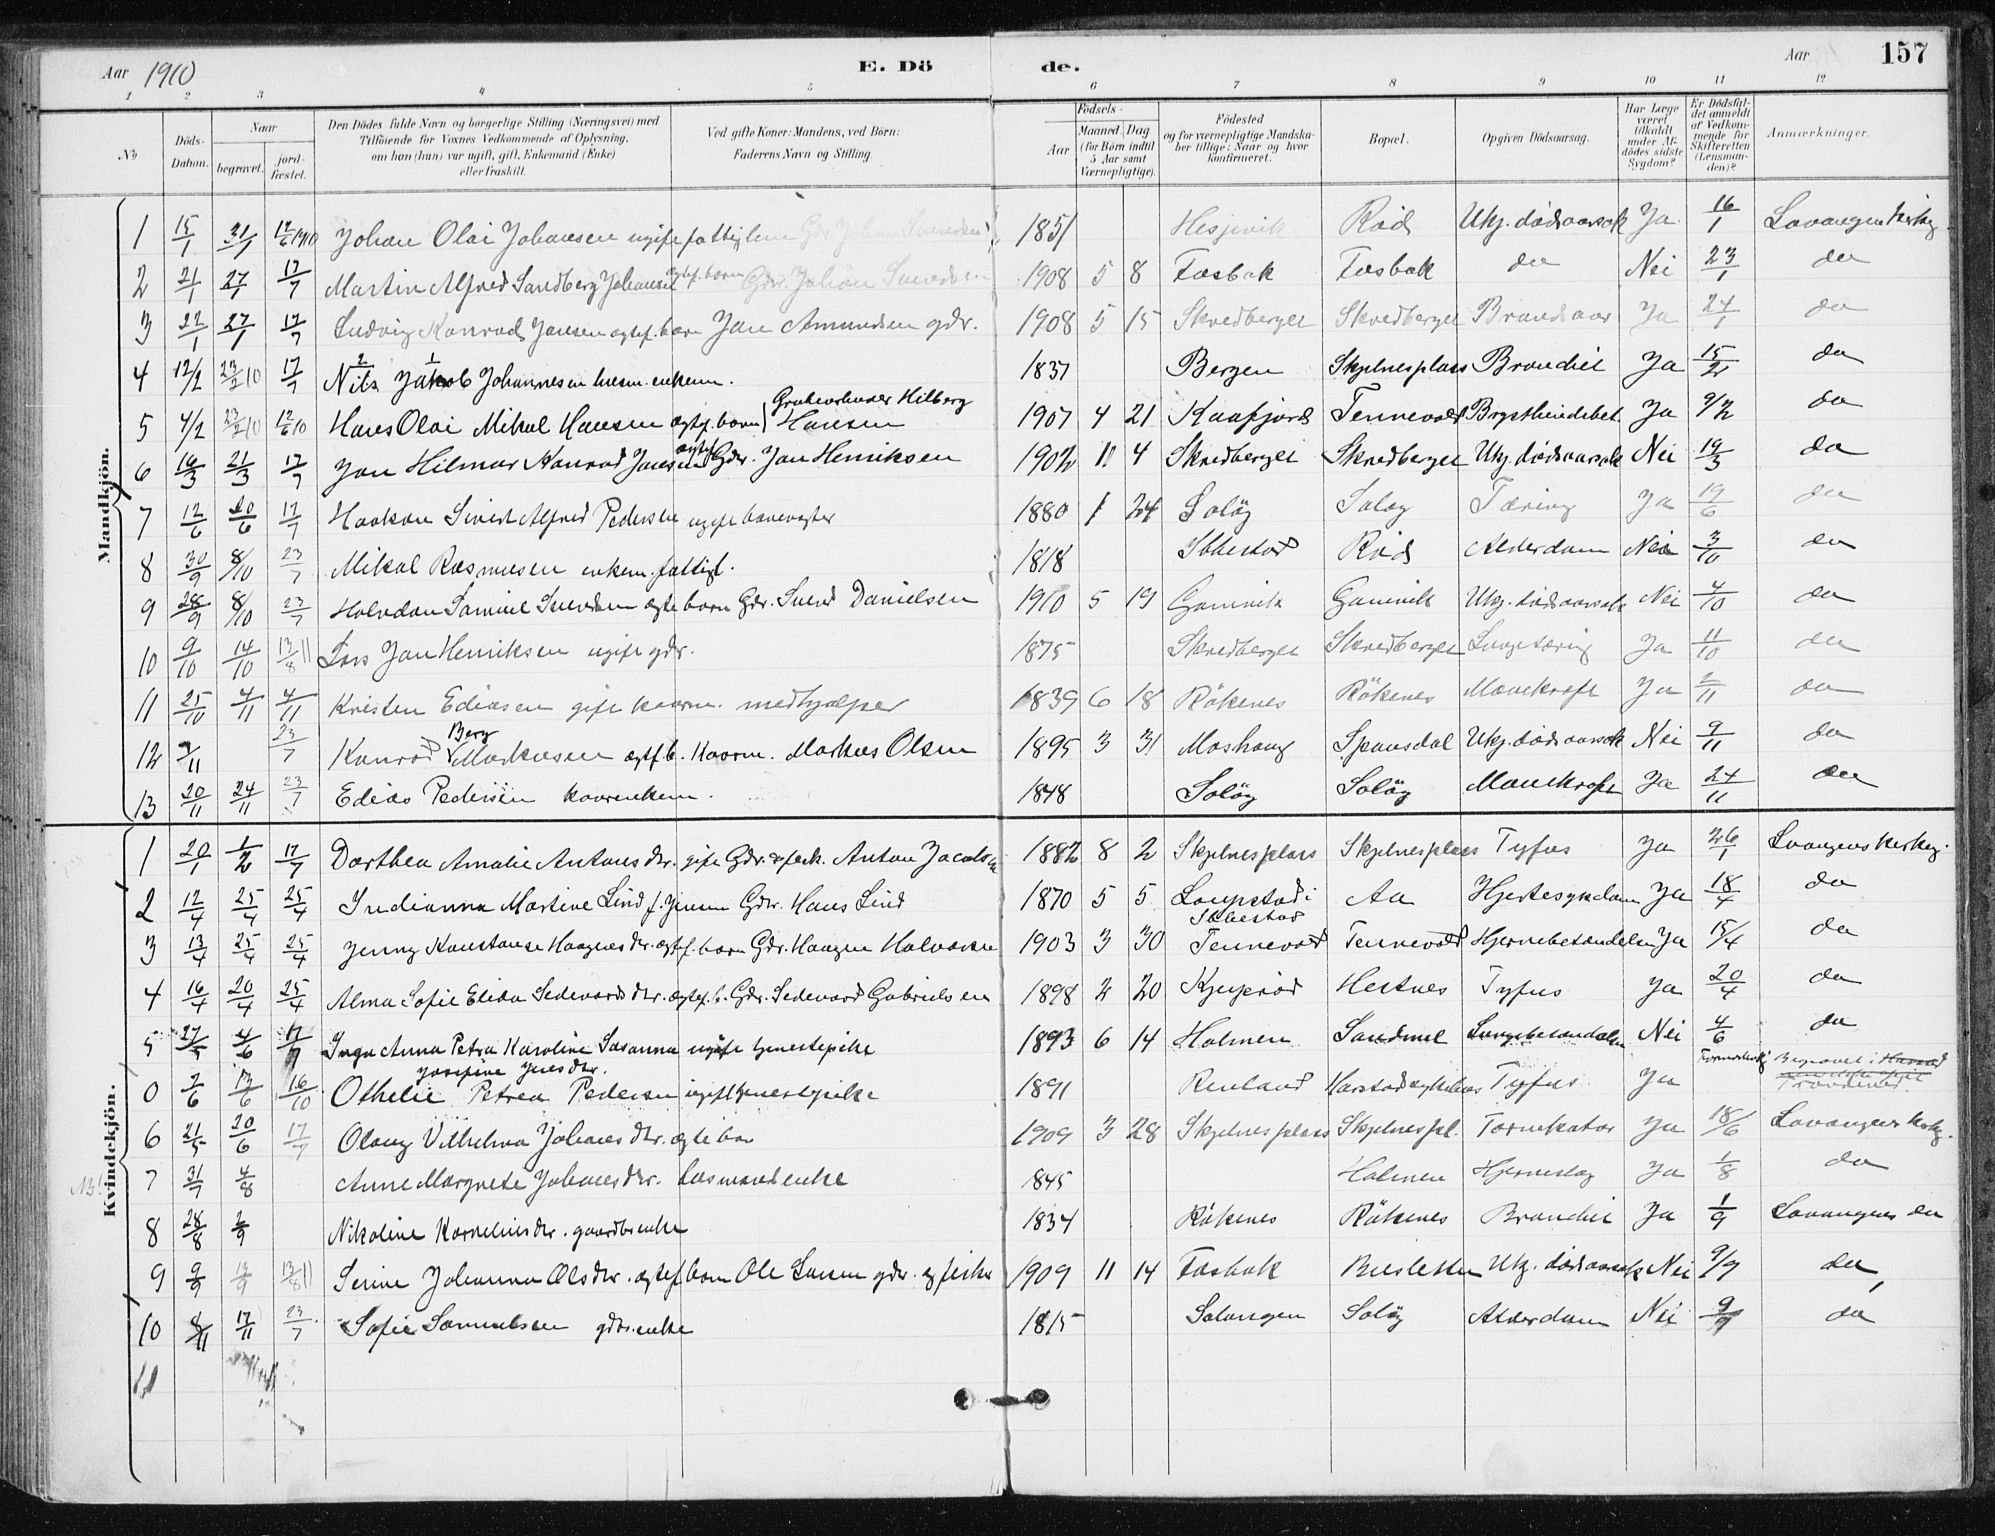 Aar 1910 E. Döde. Aar 157
1 2 3 4 5 6 7 8 9 10 11 12
No
Döds-Datum.
Naar
begravet.
jordfæstet.
Den Dödes fulde Navn og borgerlige Stilling (Næringsvei) med
Tilföiende for Voxnes Vedkommende af Oplysning,
om han (hun) var ugift, gift, Enkemand (Enke)
eller fraskilt.
Ved gifte Koner: Mandens, ved Börn:
Faderens Navn og Stilling.
Födsels-
Aar
Maaned. Dag
(for Börn indtil
5 Aar samt
Værnepligtige).
Födested
og for værnepligtige Mandskaber tillige: Naar og hvor
konfirmeret.
Bopæl.
Opgiven Dödsaarsag.
Har Læge
været
tilkaldt
under Afdödes sidste
Sygdom?
Er Dödsfaldet anmeldt
af Vedkommende for
Skifteretten
(Lensmanden)?
Anmærkninger.
Mandkjön.
1 15/1 21/1 12/6 1910 Johan Olai Johansen ugift fattiglem 1851 Hesjevik Röd Ukj. dödsaarsak Ja 16/1 Lavangen kirkeg.
2 21/1 27/1 17/7 Martin Alfred Sandberg Johansen egtef. barn Gdr. Johan Sundsen 1908 5 8 Fosbak Fosbak do Nei 23/1 do
3 22/1 27/1 17/7 Ludvig Konrad Jansen egtef. barn Jan Amundsen gdr. 1908 5 15 Skredberget Skredberget Brandsaar Ja 24/1 do
4 12/2 23/2 10 17/7 Nils Jakob Johannesen husm. enkem. 1837 Bergen Skjelnesplass Bronchit Ja 15/2 do
5 4/2 23/2 10 12/6 10 Hans Olai Mikal Hansen egtef. barn Grubearbeider Hilberg Hansen 1907 4 21 Kaafjord Tennevold Brysthindebet. Ja 9/2 do
6 16/3 21/3 17/7 Jan Hilmar Konrad Jansen egtef. Gdr. Jan Henriksen 1902 11 4 Skredberget Skredberget Ukj. dödsaarsak Nei 19/3 do
7 12/6 20/6 17/7 Haakon Sivert Alfred Pedersen ugift banevogter 1880 1 24 Soløy Soløy Tæring Ja 19/6 do
8 30/9 8/10 23/7 Mikal Rasmusen enkem. fattigl. 1818 Ibbestad Röd Alderdom Nei 3/10 do
9 28/9 8/10 23/7 Halvdan Samuel Svendsen egte barn Gdr. Svend Danielsen 1910 5 19 Gamvik Gamvik Ukj. dödsaarsak Nei 4/10 do
10 9/10 14/10 13/8 11 Lars Jan Henriksen ugift gdr. 1875 Skredberget Skredberget Lungetæring Ja 11/10 do
11 25/10 4/11 4/11 Kristen Ediasen gift kaarm. medhjælper 1839 6 18 Rökenes Rökenes Mavekræft Ja 2/11 do
12 7/11 23/7 Konrad Berg Markusen egtf. b. Kaarm. Markus Olsen 1895 3 31 Moshaug Spansdal Ukj. dödsaarsak Nei 9/11 do
13 20/11 24/11 23/7 Edias Pedersen kaarenkem. 1848 Soløy Soløy Mavekræft Ja 24/11 do
Kvindekjön.
1 20/1 1/2 17/7 Dorthea Amalie Antonsdtr. gift Gdr. & fisk. Anton Jacobsen 1882 8 2 Skjelnesplass Skjelnesplass Tyfus Ja 26/1 Lavangens kirkeg.
2 12/4 25/4 25/4 Indianna Martine Lind f. Jensen Gdr. Hans Lind 1870 5 5 Laupstad i Ibbestad Aa Hjertesygdom Ja 18/4 do
3 13/4 25/4 25/4 Jenny Konstanse Haagensdtr. egtef. barn Gdr. Haagen Halvorsen 1903 3 30 Tennevold Tennevold Hjernebetændelse Ja 15/4 do
4 16/4 20/4 25/4 Alma Sofie Elida Sedevardsdtr. egtef. b. Gdr. Sedevard Gabrielsen 1898 2 20 Kjeiprød Hestnes Tyfus Ja 20/4 do
5 27/5 4/6 17/7 Inga Anna Petra Karoline Susanna Josefine Jensdtr. ugift tjenestepike 1893 6 14 Holmen Sandnes Lungebetændelse Nei 4/6 do
0 7/6 13/6 16/10 Othelie Petrea Pedersen ugift tjenestepike 1891 Renland Harstad sykehus Tyfus Ja Begravet i Trondenes
6 21/5 20/6 17/7 Olaug Vilhelma Johansdtr. egte barn 1909 3 28 Skjelnesplass Skjelnespl. Tarmkatar Ja 18/6 Lavangens kirkeg.
NB! 7 31/7 4/8 Anne Margrete Johansdtr. losmand enke 1845 Holmen Hjerneslag Ja 1/8 do
8 28/8 2/9 Nikoline Korneliusdtr. gaardbr. enke 1834 Rökenes Rökenes Bronchit Ja 1/9 Lavangens do
9 9/9 13/9 13/8 11 Serine Johanna Olsdtr. egtef. barn Ole Larsen gdr. og fisker 1909 11 14 Fosbak Buesletten Ukj. dödsaarsak Nei 9/9 do
10 8/11 17/11 23/7 Sofie Samuelsen gdbr. enke 1815 Salangen Soløy Alderdom Nei 9/11 do
11